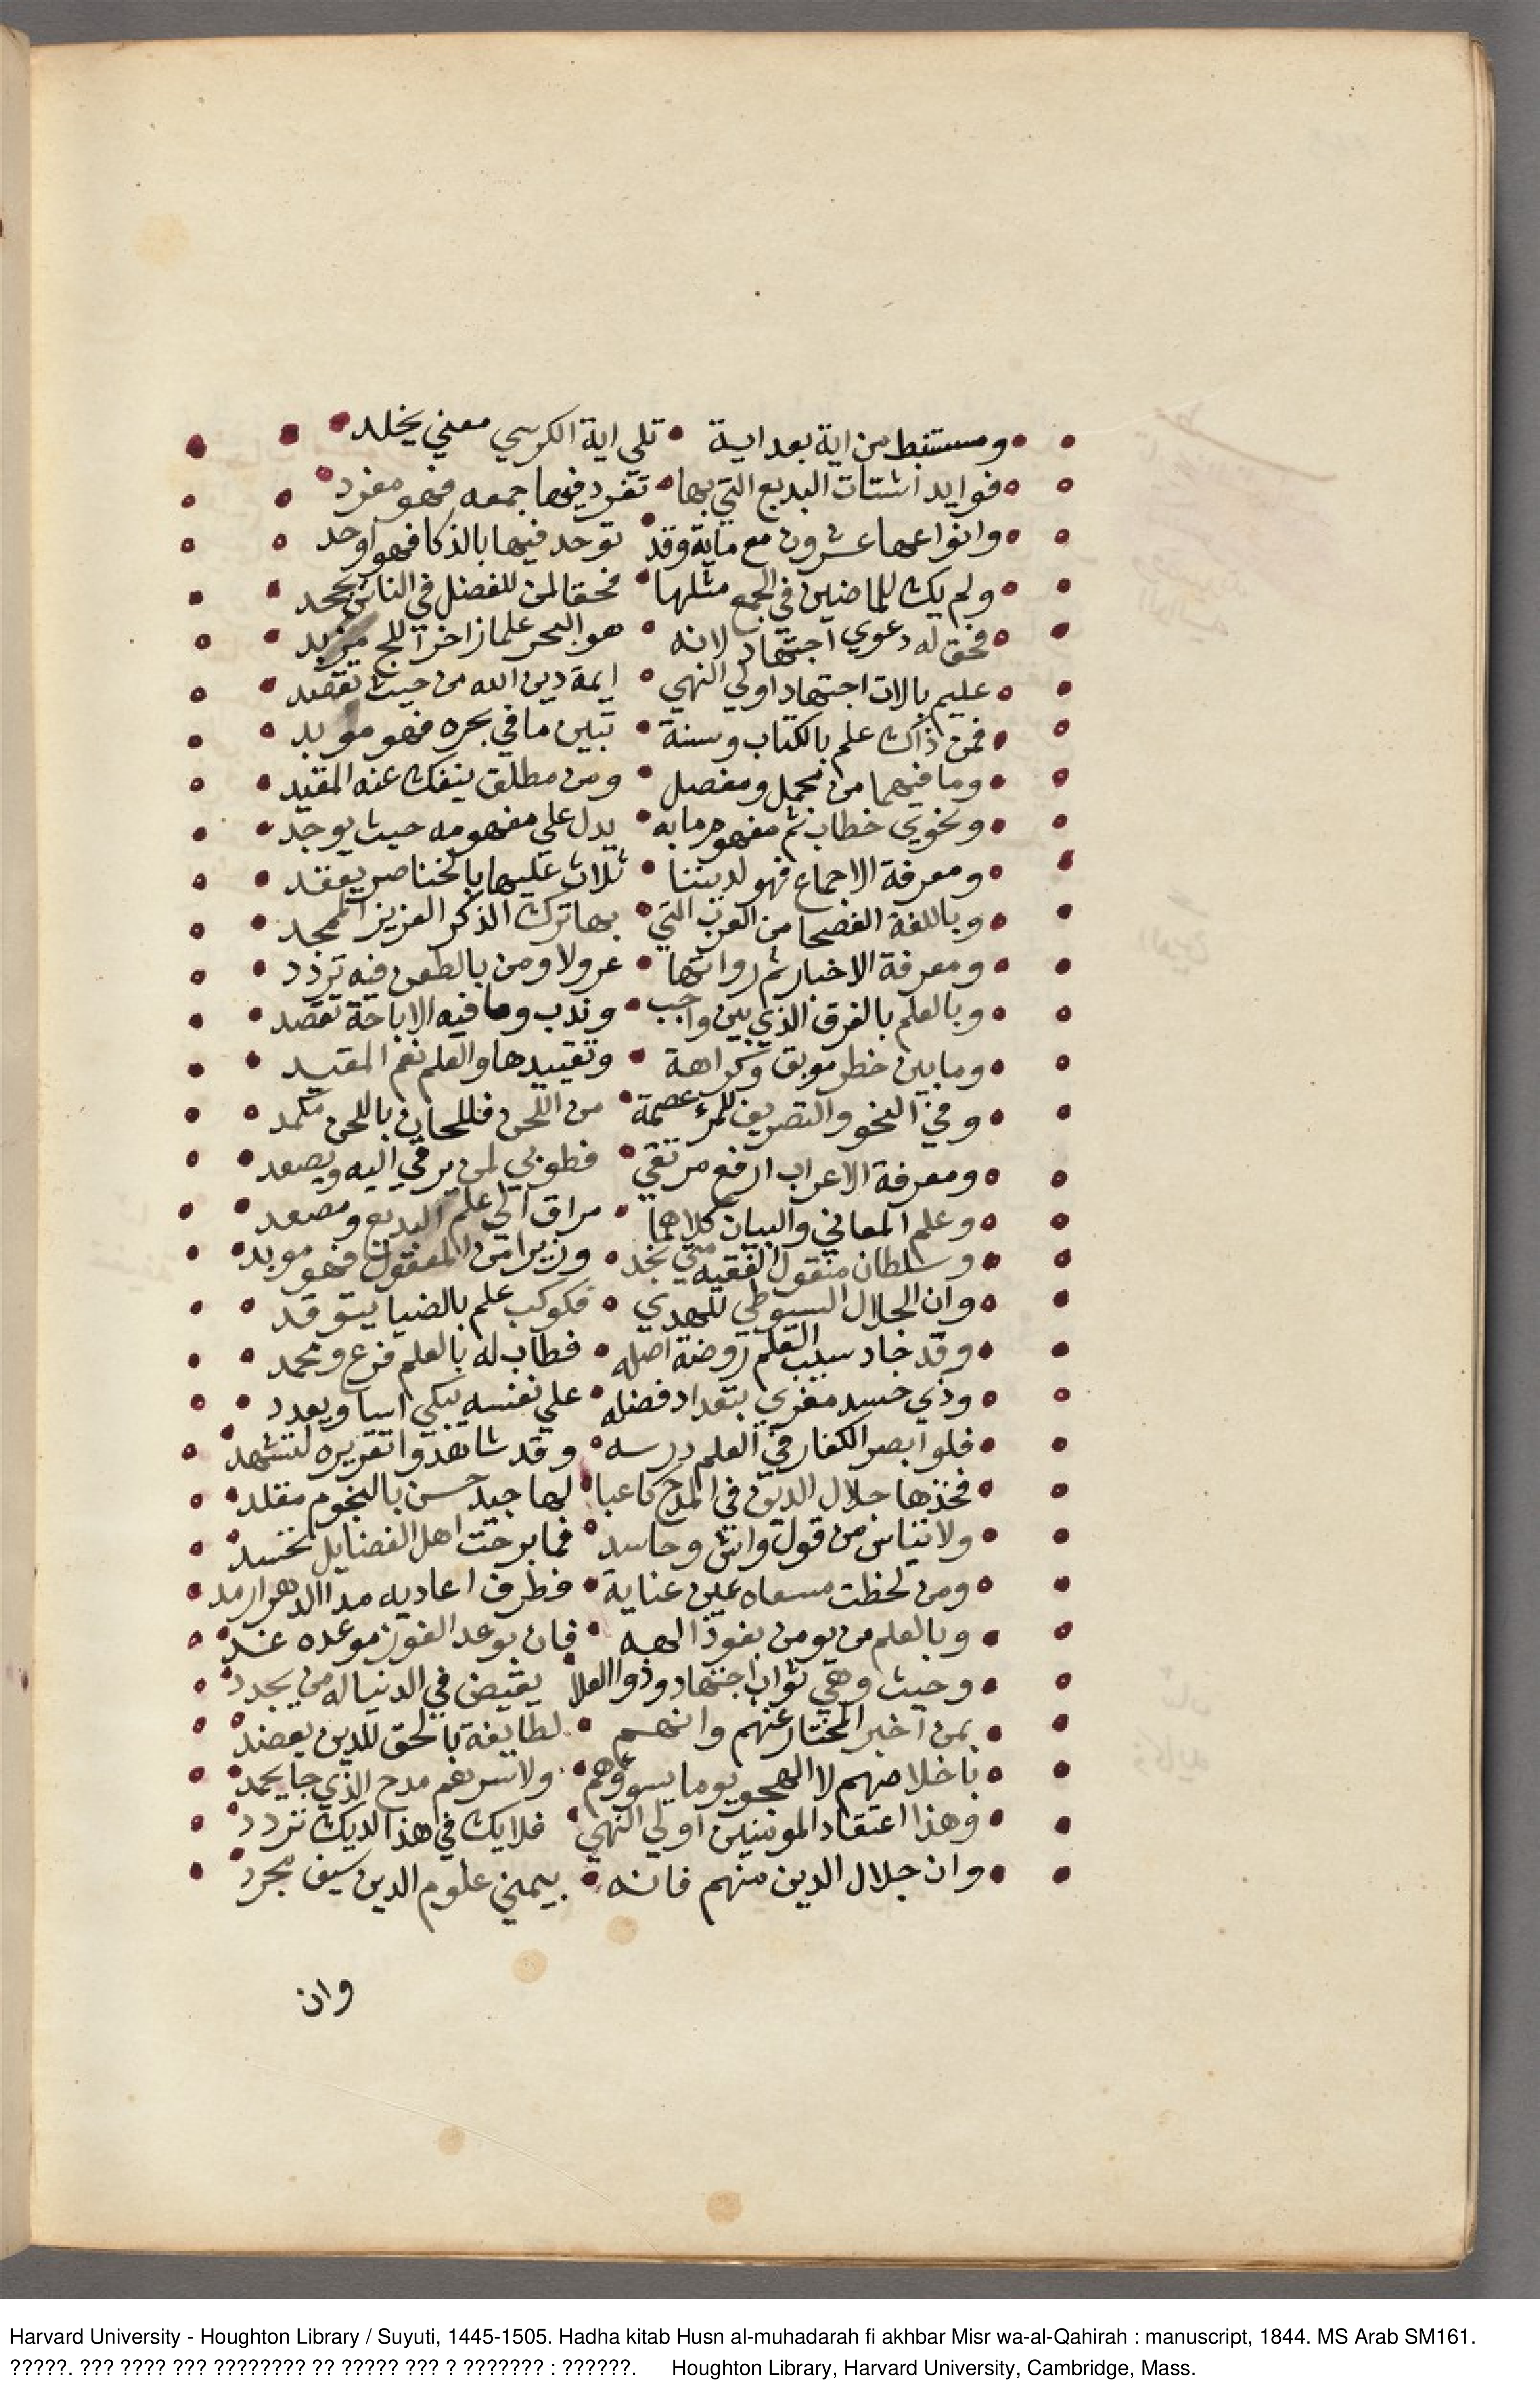 ومستنبط من اية بعد اية • تلي اية الكرسي معني يخلد
فوايد اشتات البديع التي بها • تفرد فيها جمعه فهو مفرد
وانواعها عشرون مع ماية وقد • توحد فيها بالذكا فهو اوحد
ولم يك للماضين في الجمع مثلها • فحقا لمن للفضل في الناس يجحد
فحق له دعوي اجتهاد لانه • هو البحر علما زاخر اللج مزبد
عليم بالات اجتهاد اولي النهي • ايمة دين الله من حيث تقصد
فمن ذاك علم بالكتاب وسنة • تبين ما في بحره فهو مويد
وما فيهما من مجمل ومفصل • ومن مطلق ينفك عنه المقيد
وفحوي خطاب ثم مفهوم ما به • يدل علي مفهومه حيث يوجد
ومعرفة الاجماع فهو لديننا • ثلاث عليها بالخناصر يعقد
وباللغة الفصحا من العرب التي • بها ترك الذكر العزيز الممجد
ومعرفة الاخبار ثم رواتها • عرولا ومن بالطعن فيه تردد
وبالعلم بالفرق الذي بين واجب • وندب وما فيه الاباحة تقصد
وما بين خطر موبق وكراهة • وتقييدها والعلم نعم المقيد
وفي النحو والتصريف للمرء عصمة • من اللحن فللحان باللحن مكمد
ومعرفة الاعراب ارفع مرتقي • فطوبي لمن يرقي اليه ويصعد
وعلم المعاني والبيان كلاهما • مراق الي علم البديع ومصعد
وسلطان منقول الفقيه متي نجد • وزيرا من المعقول فهو مويد
وان الجلال السيوطي للهدي • فكوكب علم بالضيا يتوقد
وقد جاد سيب العلم روضة اصله • فطاب له بالعلم فرع ومحمد
وذي حسد مغري بتعداد فضله • علي نفسه يبكي اسا ويعدد
فلو ابصر الكفار في العلم درسه • وقد شاهدوا تقريره لتشهد
فخذها جلال الدين في المدح كاعبا • لها جيد حسن بالنجوم مقلد
ولا تياس من قول واش وحاسد • فما برحت اهل الفضايل تحسد
ومن لحظت مسعاه عين عناية • فطرف اعاديه مدا الدهر ارمد
وبالعلم من يومن بفوذ الهه • فان يوعد الفوز موعده غد
وحيث وهي ثواب اجتهاد وذوا العلا • يقيض في الدنيا له من يجدد
بمن اخبر المختار عنهم وانهم • لطايفة بالحق للدين يعضد
باخلاصهم لا الهجو يوما يسوؤهم • ولا سرهم مدح الذي جا يحمد
وهذا اعتقاد المومنين اولي النهي • فلا يك في هذا لديك تردد
وان جلال الدين منهم فانه • بيمني علوم الدين سيف مجرد
وان
Harvard University - Houghton Library / Suyuti, 1445-1505. Hadha kitab Husn al-muhadarah fi akhbar Misr wa-al-Qahirah : manuscript, 1844. MS Arab SM161.
?????. ??? ???? ??? ???????? ?? ????? ??? ? ??????? : ??????. Houghton Library, Harvard University, Cambridge, Mass.